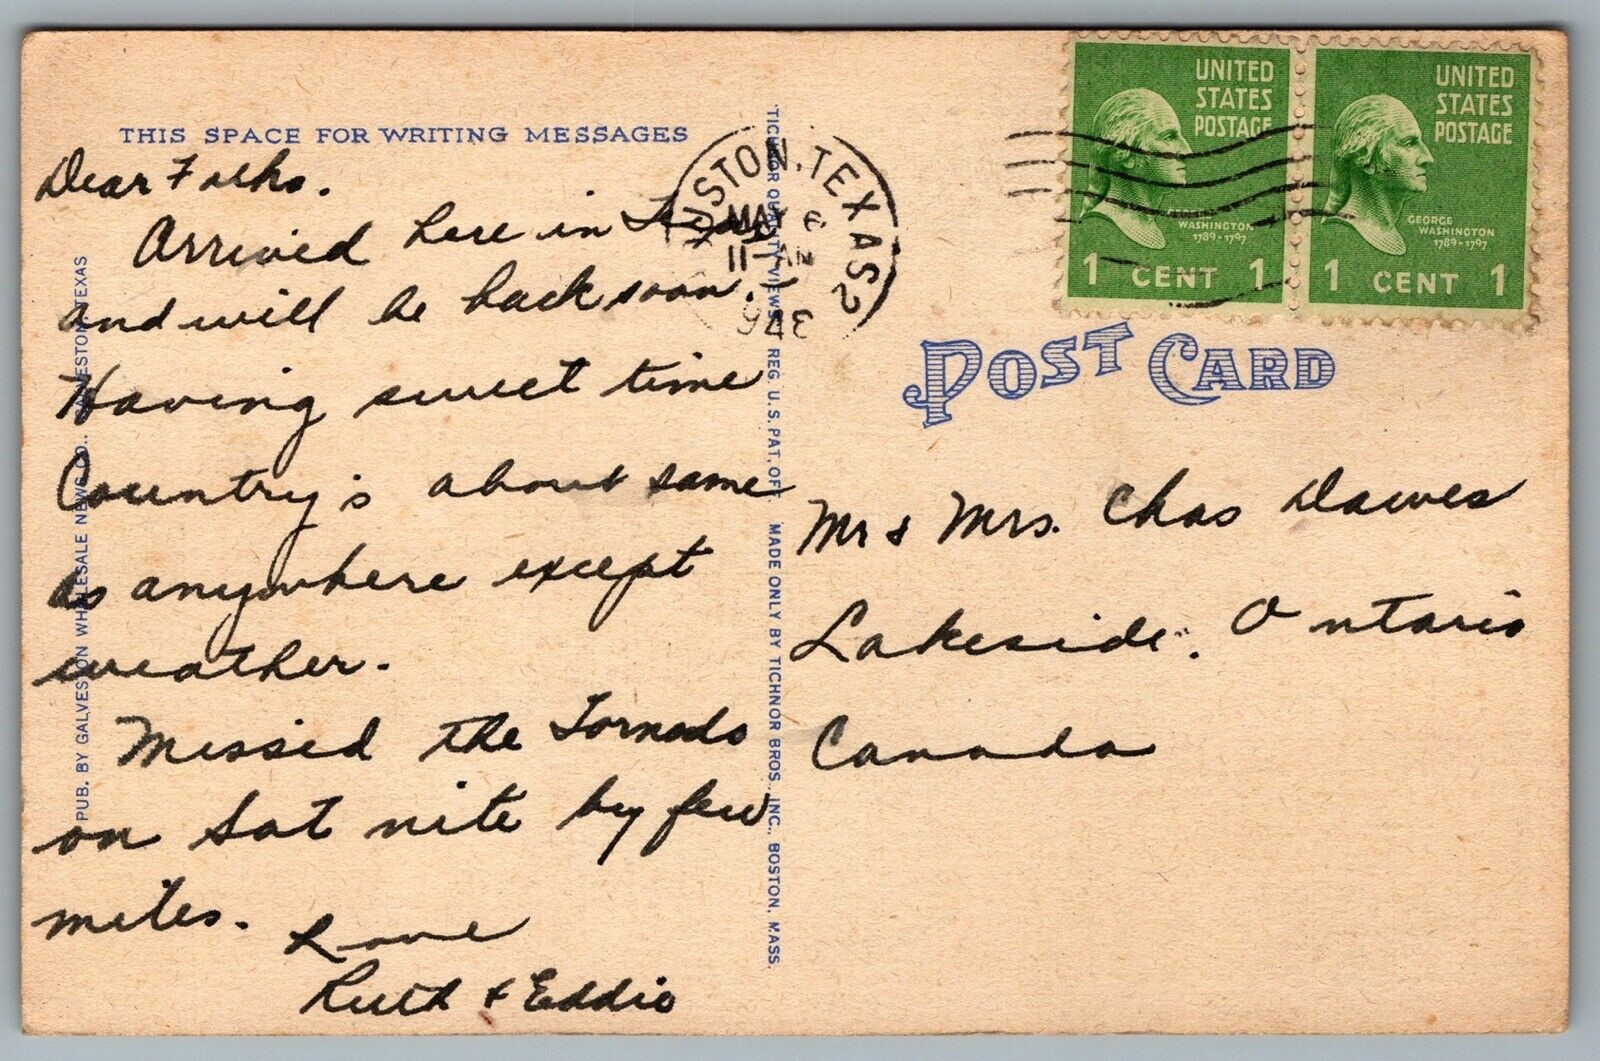 THIS SPACE FOR WRITING MESSAGES
Dear Folks.
Arrived here in Texas
and will be back soon.
Having sweet time
Country's about same
as anywhere except
weather.
Missed the Tornado
on Sat nite by few
miles.
Love
Ruth & Eddie
PUB. BY GALVESTON WHOLESALE NEWS CO., GALVESTON, TEXAS
TICHNOR QUALITY VIEWS, REG. U. S. PAT. OFF. MADE ONLY BY TICHNOR BROS. INC., BOSTON, MASS.
HOUSTON, TEXAS 2
MAY 6
11 AM
UNITED
STATES
POSTAGE
GEORGE
WASHINGTON
1789-1797
1 CENT 1
UNITED
STATES
POSTAGE
GEORGE
WASHINGTON
1789-1797
1 CENT 1
POST CARD
Mr & Mrs. Chas Dawes
Lakeside. Ontario
Canada